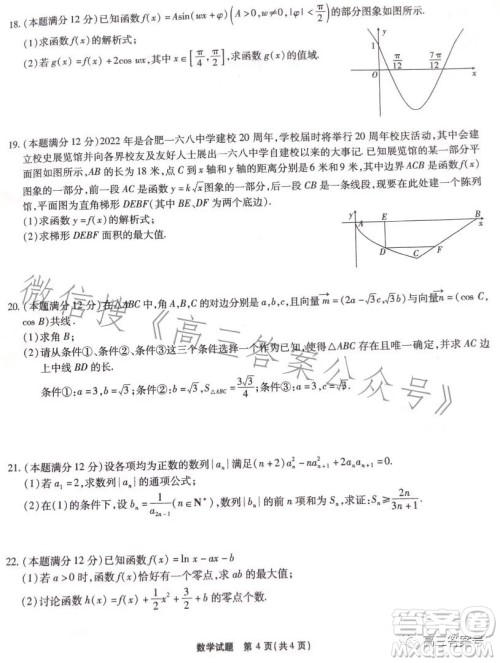 18. (本题满分 12 分) 已知函数 f(x)=Asin(wx+φ)(A>0,w≠0,|φ|<π/2) 的部分图象如图所示.
(1)求函数 f(x) 的解析式;
(2)若 g(x)=f(x)+2cos wx,其中 x∈[π/4,π/2],求函数 g(x) 的值域.
y
1
O
π/12
7π/12
x
19. (本题满分 12 分) 2022 年是合肥一六八中学建校 20 周年,学校届时将举行 20 周年校庆活动,其中会建
立校史展览馆并向各界校友及友好人士展出一六八中学自建校以来的大事记. 已知展览馆的某一部分平
面图如图所示,AB 的长为 18 米,点 C 到 x 轴和 y 轴的距离分别是 6 米和 9 米,其中边界 ACB 是函数 f(x)
图象的一部分,前一段 AC 是函数 y=k√x图象的一部分,后一段 CB 是一条线段,现要在此处建一个陈列
馆,平面图为直角梯形 DEBF(其中 BE、DF 为两个底边).
(1)求函数 f(x) 的解析式;
(2)求梯形 DEBF 面积的最大值.
y
A
E
B
x
D
F
C
20. (本题满分 12 分) 在△ABC 中,角 A,B,C 的对边分别是 a,b,c,且向量 m=(2a-√3c,√3b)与向量 n=(cos C,
cos B)共线.
(1)求角 B;
(2)请从条件①、条件②、条件③中选择一个作为已知,使得△ABC 存在且唯一确定,并求出 AC 边
上中线 BD 的长.
条件①:a=3,b=√3; 条件②:b=√3,S△ABC=3√3/4; 条件③:a=3,c=√3.
21. (本题满分 12 分) 设各项均为正数的数列{aₙ}满足(n+2)aₙ²-naₙ₊₁²+2aₙaₙ₊₁=0.
(1)若 a₁=2,求数列{aₙ}的通项公式;
(2)在(1)的条件下,设 bₙ=1/a₂ₙ₋₁(n∈N*),数列{bₙ}的前 n 项和为 Sₙ,求证:Sₙ≥2n/(3n+1).
22. (本题满分 12 分) 已知函数 f(x)=ln x-ax-b
(1)若 a>0 时,函数 f(x) 恰好有一个零点,求 ab 的最大值;
(2)讨论函数 h(x)=f(x)+1/2x²+3/2+b 的零点个数.
数学试题 第 4 页(共 4 页)
微信搜《高三答案公众号》
高三答案号